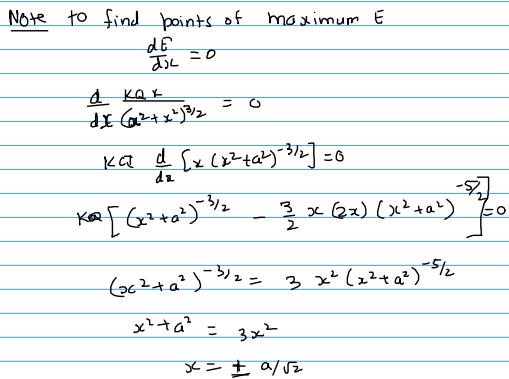 Note to find points of maximum E
dE/dx = 0
d/dx KQx/(a²+x²)^3/2 = 0
KQ d/dx [x (x²+a²)^-3/2] = 0
KQ [(x²+a²)^-3/2 - 3/2 x (2x) (x²+a²)^-5/2] = 0
(x²+a²)^-3/2 = 3 x² (x²+a²)^-5/2
x²+a² = 3x²
x = ± a/√2